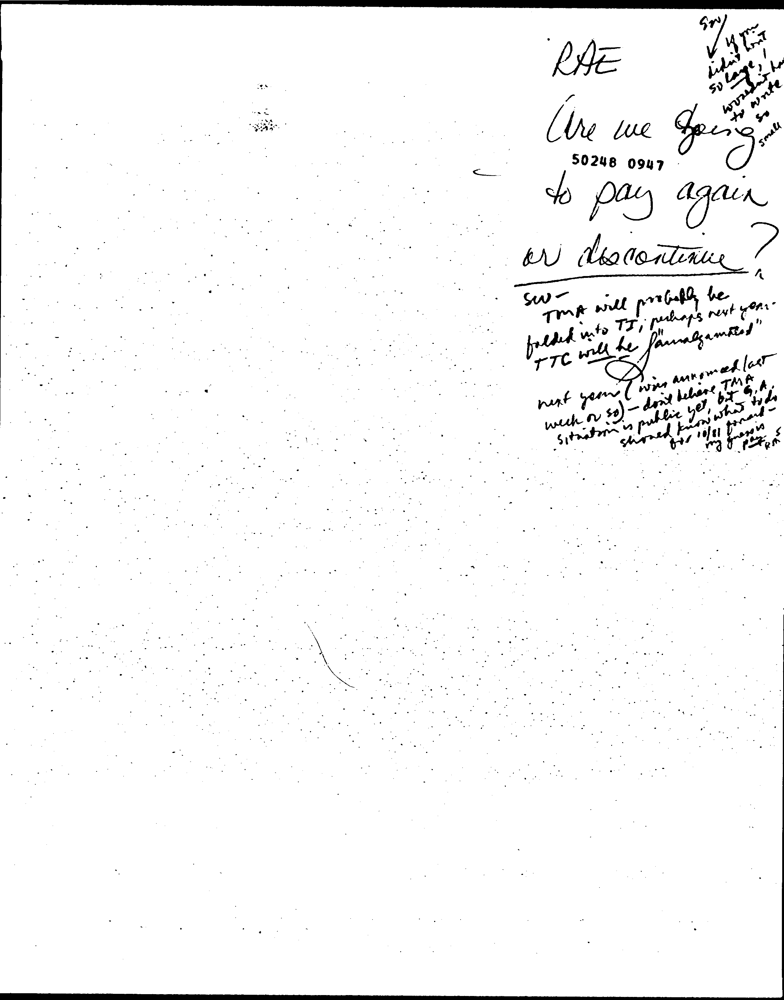 RAE
Are we going
50248 0947
to pay again
or discontinue?
SW
If you
didn't writ
so large, I
wouldn't ha
to write
so
small
SW-
TMA will probably be
folded into TI, perhaps next year.
TTC will be "amalgamated"
next year (was announced last
week or so) - don't believe TMA
situation is public yet, but G.A.
should know what to do
for 10/81 forward -
my guess is
pay